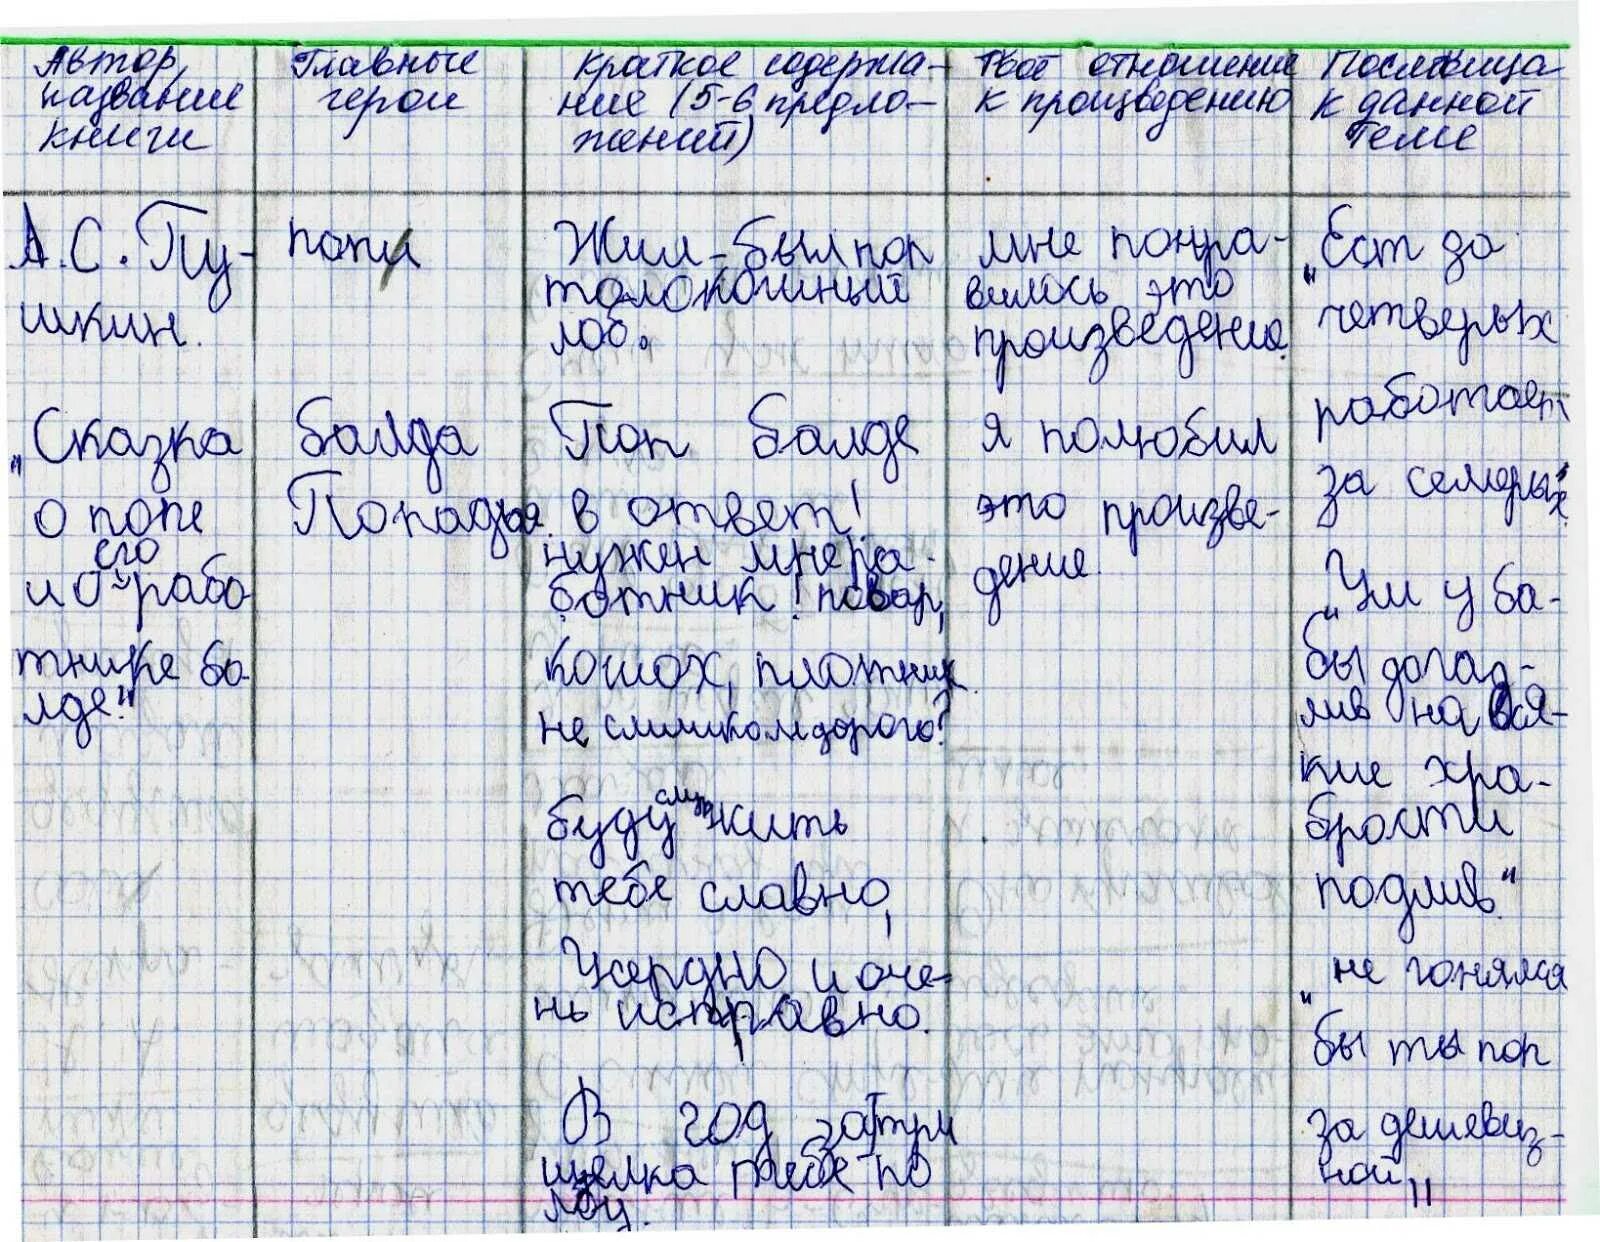 Автор,
название
книги
Главные
герои
Краткое содержа-
ние (5-6 предло-
жений)
Твоё отношение
к произведению
Пословица
к данной
теме
А.С. Пу-
шкин.
„Сказка
о попе
и о его рабо
тнике ба-
лде."
поп
балда
Попадья
Жил-был поп
толоконный
лоб.
Поп балде
в ответ!
нужен мне ра-
ботник! повар,
кошох, плотник
не слишком дорого?
буду служить
тебе славно,
Усердно и оче-
нь исправно.
В год за три
щелка тебе по
лбу.
мне понра-
вилось это
произведение.
я полюбил
это произве-
дение.
„Ест за
четверых
работает
за семерых"
„Ум у ба-
бы догад-
лив на вся-
кие хра-
брости
подлив."
„не гонялся
бы ты поп
за дешевиз-
ной"